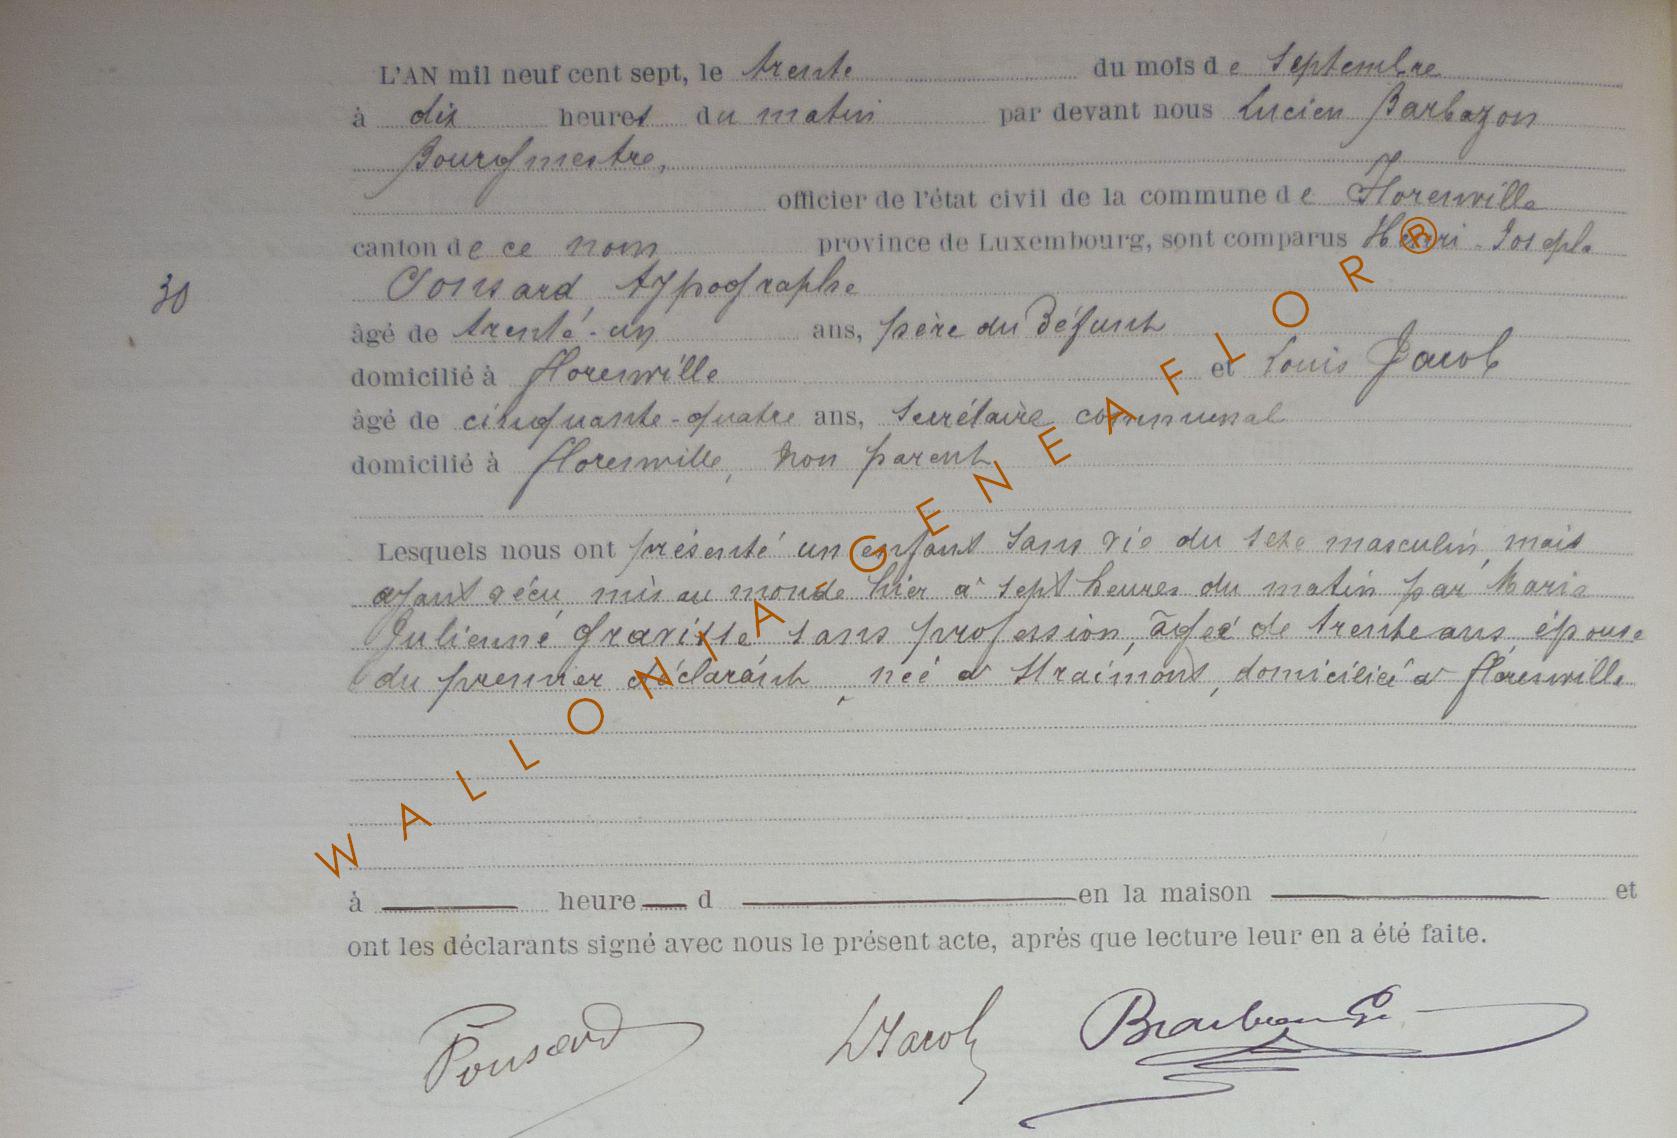 L'AN mil neuf cent sept, le trente du mois de septembre
à dix heures du matin par devant nous Lucien Barbazon
Bourgmestre,
officier de l'état civil de la commune de Florenville
canton de ce nom province de Luxembourg, sont comparus Henri-Joseph
30 Ponsard typographe
âgé de trente-un ans, père du Défunt
domicilié à Florenville et Louis Jacob
âgé de cinquante-quatre ans, secrétaire communal
domicilié à Florenville, non parent
Lesquels nous ont présenté un enfant sans vie du sexe masculin, mais
ayant vécu, mis au monde hier à sept heures du matin par Marie
Julienne Gravisse sans profession, âgée de trente ans, épouse
du premier déclarant, née à Straimont, domiciliée à Florenville
à heure d en la maison et
ont les déclarants signé avec nous le présent acte, après que lecture leur en a été faite.
Ponsard LJacob
WALLONIA GENEAFLOR®